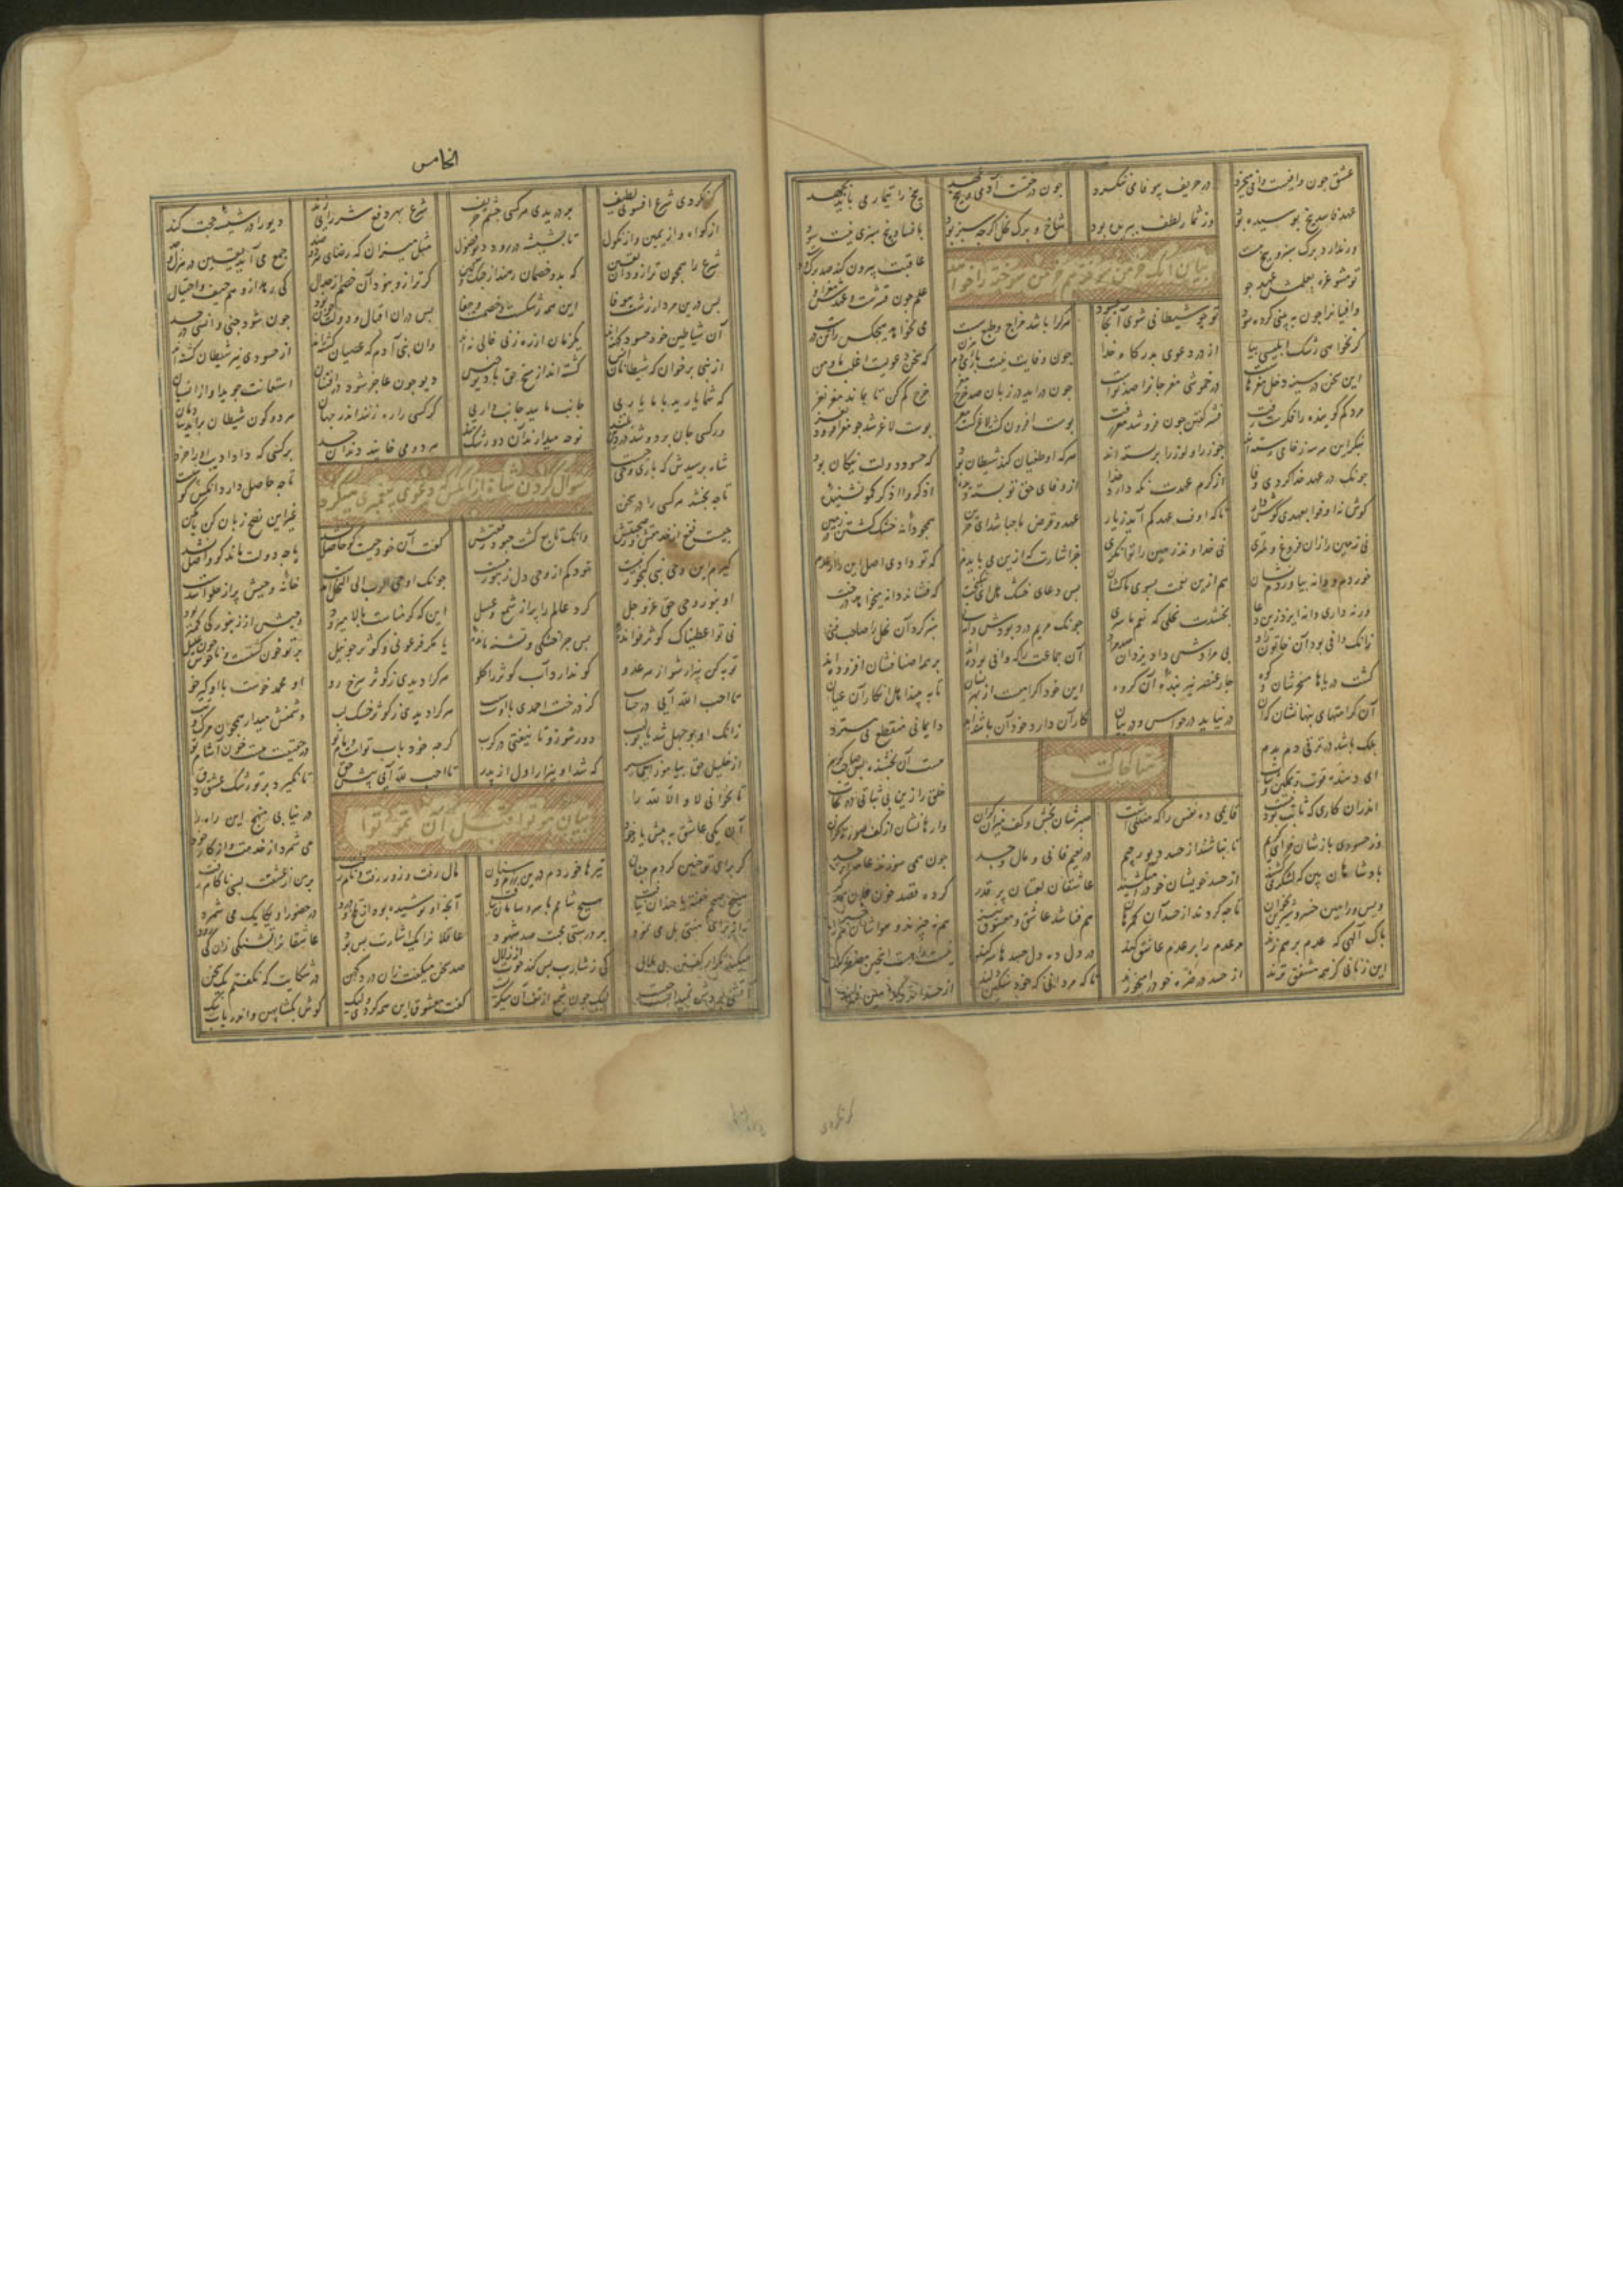 عشق چون وافیست وافی میخرد در حریف بیوفا می ننکرد چون درختست آدمی و بیخ عهد بیخ را تیمار می باید بجهد
عهد فاسد بیخ بوسیده بود وز ثمار لطف ببریده بود شاخ و برک نخل کرچه سبز بود با فساد بیخ سبزی نیست سود
ور ندارد برک سبز و بیخ هست عاقبت بیرون کند صد برک دست
تو مشو غره بعلمش عهد جو علم چون قشرست و عهدش مغز او
بیان آنک
وافیانرا چون ببینی کرده سود تو چو شیطانی شوی آنجا حسود هرکرا باشد مزاج و طبع سست می نخواهد هیچ کس را تن درست
کر نخواهی رشک ابلیسی بیا از در دعوی بدرکاه خدا چون وفایت نیست باری دم مزن که سخن دعویست اغلب ما و من
این سخن در سینه دخل مغزهاست در خموشی مغز جانرا صد نواست چون درآید در زبان شد خرج مغز خرج کم کن تا بماند مغز نغز
مرد کم کوینده را فکرت زفت قشر کفتن چون فزون شد مغز رفت بوست افزون کشت لاغر کشت مغز بوست لاغر شد چو مغز افزود نغز
بنکر این هر سه ز خامی رسته را جوز را و لوز را و پسته را هرکه او عصیان کند شیطان بود که حسود دولت نیکان بود
چونک در عهد خدا کردی وفا از کرم عهدت نکه دارد خدا از وفای حق تو بسته دیده اذکروا اذکرکم نشنیده
کوش نه اوفوا بعهدی کوش دار تا که اوف عهدکم آید ز یار عهد و قرض ما چه باشد ای حزین همچو دانه خشک کشتن در زمین
نی زمین را زان فروغ و لمتری نی خداوند زمین را توانکری جز اشارت که ازین می بایدم که تو دادی اصل این را از عدم
خوردم و دانه بیاوردم نشان هم ازین نعمت بسوی ما کشان بس دعای خشک هل ای نیکبخت که فشاند دانه میخواهد درخت
ور نداری دانه ایزد زین دعا بخشدت نخلی که نعم ما سعی چونک مریم درد بودش دانه نی سبز کرد آن نخل را صاحب فنی
زانک وافی بود آن خاتون راد بی مرادش داد یزدان صد مراد آن جماعت را که وافی بوده اند بر همه اصنافشان افزوده اند
کشت دریاها مسخرشان و کوه چار عنصر نیز بنده آن کروه این خود اکرامیست از بهر نشان تا ببینند اهل انکار آن عیان
آن کرامتهای پنهانشان که آن در نیاید در حواس و در بیان کار آن دارد خود آن باشد ابد دایما نی منقطع نی مسترد
بلک باشد در ترقی دم بدم هست آن بخشنده بس صاحب کرم
مناجات
ای دهنده قوت و تمکین و ثبات خلق را زین بی ثباتی ده نجات
اندران کاری که ثابت بودنیست قایمی ده نفس را که منثنیست صبرشان بخش و کف میزان کران وارهانشان از کف صورتکران
وز حسودی بازشان خر ای کریم تا نباشند از حسد دیو رجیم در نعیم فانی و مال و جسد چون همی سوزند عامه از حسد
بادشاهان بین که لشکر میکشند از حسد خویشان خود را میکشند عاشقان لعبتان پر قذر کرده قصد خون و جان همدکر
ویس و رامین خسرو شیرین بخوان تا چه کردند از حسد آن کمرهان هم فنا شد عاشق و معشوق نیز هم نه چیزند و هواشان هم نه چیز
پاک الهی که عدم بر هم زند مر عدم را بر عدم عاشق کند در دل نه دل حسدها سر کند نیست را هست این چنین مضطر کند
این زنانی کز همه مشفق ترند از حسد دو ضره خود را میخورند تا که مردانی که خود سنکین دلند از حسد اندر کدامین منزلند
کر نکردی
الخامس
کر نکردی شرع افسونی لطیف بر دریدی هر کسی جسم حریف شرع بهر دفع شر رایی زند دیو را در شیشه حجت کند
از کواه و از یمین و از نکول تا بشیشه در رود دیو فضول مثل میزان که رضای هر دو ضد جمع می آید یقین در هزل و جد
شرع را همچون ترازو دان یقین که بدو خصمان رهند از جنک و کین کر ترازو نبود آن خصم از جدال کی رهد از وهم حیف و احتیال
بس درین مردار زشت بیوفا این همه رشکست و خصمیست و جفا بس در ان اقبال و دولت چون بود چون شود جنی و انسی در حسد
آن شیاطین خود حسود کهنه اند یکزمان از ره زنی خالی نه اند وان بنی آدم که عصیان کشته اند از حسودی نیز شیطان کشته اند
از نبی برخوان که شیطانان انس کشته اند از مسخ حق با دیو جنس دیو چون عاجز شود در افتتان استعانت جوید او از انسیان
که شما یارید با ما یاریی جانب مایید جانب داریی کر کسی را ره زنند اندر جهان هر دو کون شیطان برآید شادمان
ور کسی جان برد و شد در دین بلند نوحه میدارند آن دو رشکمند هر دو می خایند دندان حسد بر کسی که داد ادیب او را خرد
سوال کردن شاه از آنکس که دعوی پیغمبری میکرد
شاه برسیدش که باری وحی چیست تا چه حاصل دارد آنکس کو نبیست
تا چه بخشد هر کسی را در سخن غیر این نصح زبان کن یا مکن
چیست نفع از خدمتش وز صحبتش وانک تابع کشت چبود رفعتش کفت آن خود چیست کو حاصل نشد یا چه دولت ماند کو واصل نشد
کیرم این وحی نبی کنجور نیست خود کم از وحی دل زنبور نیست چونک اوحی الرب الی النحل آمدست خانه وحیش پر از حلوا شدست
او بنور وحی حق عز و جل کرد عالم را پر از شمع و عسل این که کرمناست بالا میرود وحیش از زنبور کی کمتر بود
نی تو اعطیناک کوثر خوانده بس چرا خشکی و تشنه مانده یا مکر فرعونی و کوثر چو نیل بر تو خون کشتست و ناخوش
توبه کن بیزار شو از هر عدو کو ندارد آب کوثر در کدو هرکرا دیدی ز کوثر سرخ رو او محمد خوست با او کیر خو
تا احب الله آیی در حساب کز درخت احمدی با اوست سیب هرکرا دیدی ز کوثر خشک لب دشمنش میدار همچون مرک و تب
زانک او بوجهل شد یا بولهب دور شو زو تا نیفتی در کرب کرچه خود باب توست و مام تو در حقیقت هست خون آشام تو
از خلیل حق بیاموز این سیر که شد او بیزار اول از پدر تا احب لله آیی پیش حق تا نکیرد بر تو رشک عشق دق
تا نخوانی لا و الا الله را در نیابی منهج این راه را
بیان
آن یکی عاشق به پیش یار خود می شمرد از خدمت و از کار خود
کز برای تو چنین کردم چنان تیرها خوردم درین رزم و سنان مال رفت و زور رفت و نام رفت بر من از عشقت بسی ناکام رفت
هیچ صبحم خفته یا خندان نیافت هیچ شامم با سر و سامان نیافت آنچه او نوشیده بود از تلخ و درد در حضور او یکایک می شمرد
نه از برای منتی بل می نمود بر درستی محبت صد شهود عاقلانرا یک اشارت بس بود عاشقانرا تشنکی زان کی رود
میکند تکرار کفتن بی ملال کی ز اشارت بس کند حوت از زلال صد سخن میکفت زان درد کهن در شکایت که نکفتم یک سخن
آتشی بودش نمیدانست چیست لیک چون شمع از تف آن میکریست کفت معشوق این همه کردی ولیک کوش بکشا پهن و اندر یاب نیک